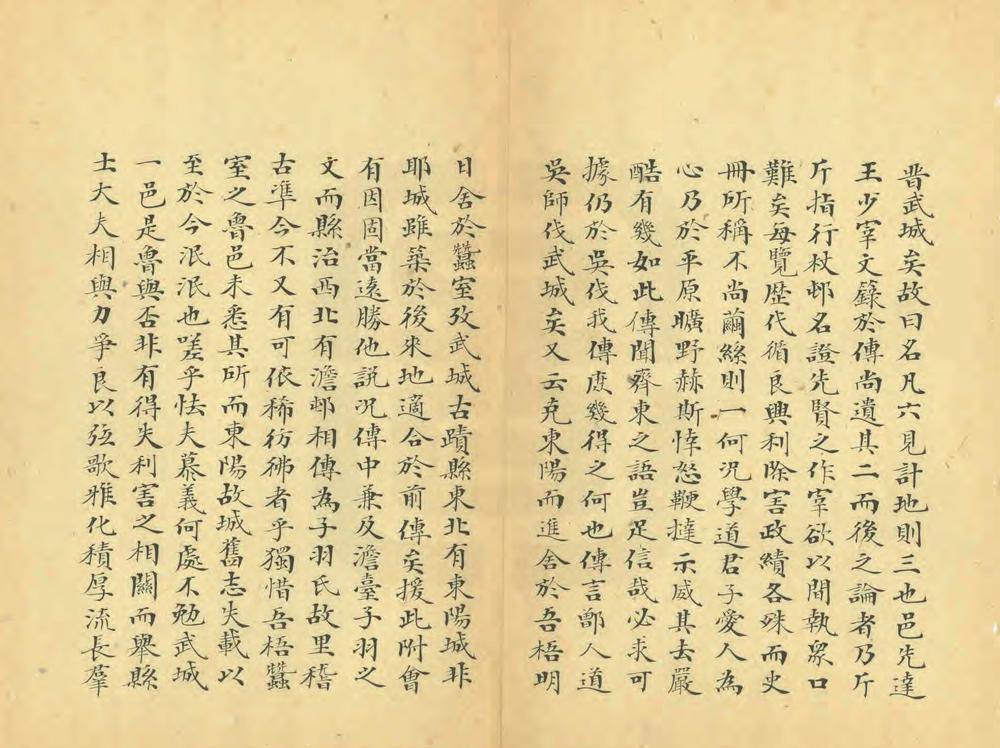 晋武城矣故曰名凡六見計地則三也邑先達
王少宰文籙於傳尚遺其二而後之論者乃斤
斤指行杖邨名證先賢之作宰欲以間執眾口
難矣每覽歷代循良興利除害政績各殊而史
冊所稱不尚繭絲則一何況學道君子愛人為
心乃於平原曠野赫斯悻怒鞭撻示威其去嚴
酷有幾如此傳聞齊東之語豈足信哉必求可
據仍於吳伐我傳庶幾得之何也傳言鄫人道
吳師伐武城矣又云克東陽而進舍於吾梧明
日舍於蠶室攷武城古蹟縣東北有東陽城非
耶城雖築於後來地適合於前傳矣援此附會
有因固當遠勝他說况傳中兼及澹臺子羽之
文而縣治西北有澹邨相傳為子羽氏故里稽
古準今不又有可依稀彷彿者乎獨惜吾梧蠶
室之魯邑未悉其所而東陽故城舊志失載以
至於今泯泯也嗟乎怯夫慕義何處不勉武城
一邑是魯與否非有得失利害之相關而舉縣
士大夫相與力爭良以弦歌雅化積厚流長羣